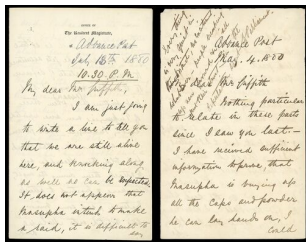 OFFICE OF
The Resident Magistrate,
Advance Post
July 18th 1880
10.30. P.M.
My dear Mr Griffith,
I am just going
to write a line to tell you
that we are still alive
here, and knocking along
as well as can be expected
It does not appear that
Masupha intends to make
a raid, it is difficult to
say
Advance Post
Aug. 4. 1880
dear Mr Griffith
Nothing particular
to relate in these parts
since I saw you last.—
I have received sufficient
information to prove, that
Masupha is buying up
all the caps and powder
he can lay hands on, I
could